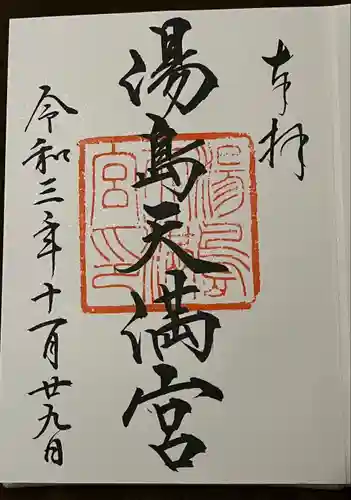 奉拝
湯島天満宮
令和三年十一月廿九日